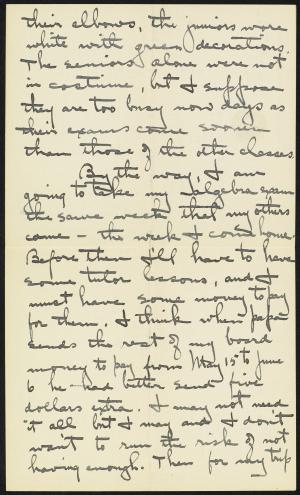 their elbows, the juniors wore
white with green decorations.
The seniors alone were not
in costume, but I suppose
they are too busy now days as
their exams come sooner
than those of the other classes.
By the way, I am
going to take my algebra exam
the same week that my others
come - the week I come home.
Before then I'll have to have
some tutor lessons, and I
must have some money to pay
for them. I think when papa
sends the rest of my board
money to pay from May 15th to June
6 he had better send five
dollars extra. I may not need
it all but I may and I don't
want to run the risk of not
having enough. Then for my trip